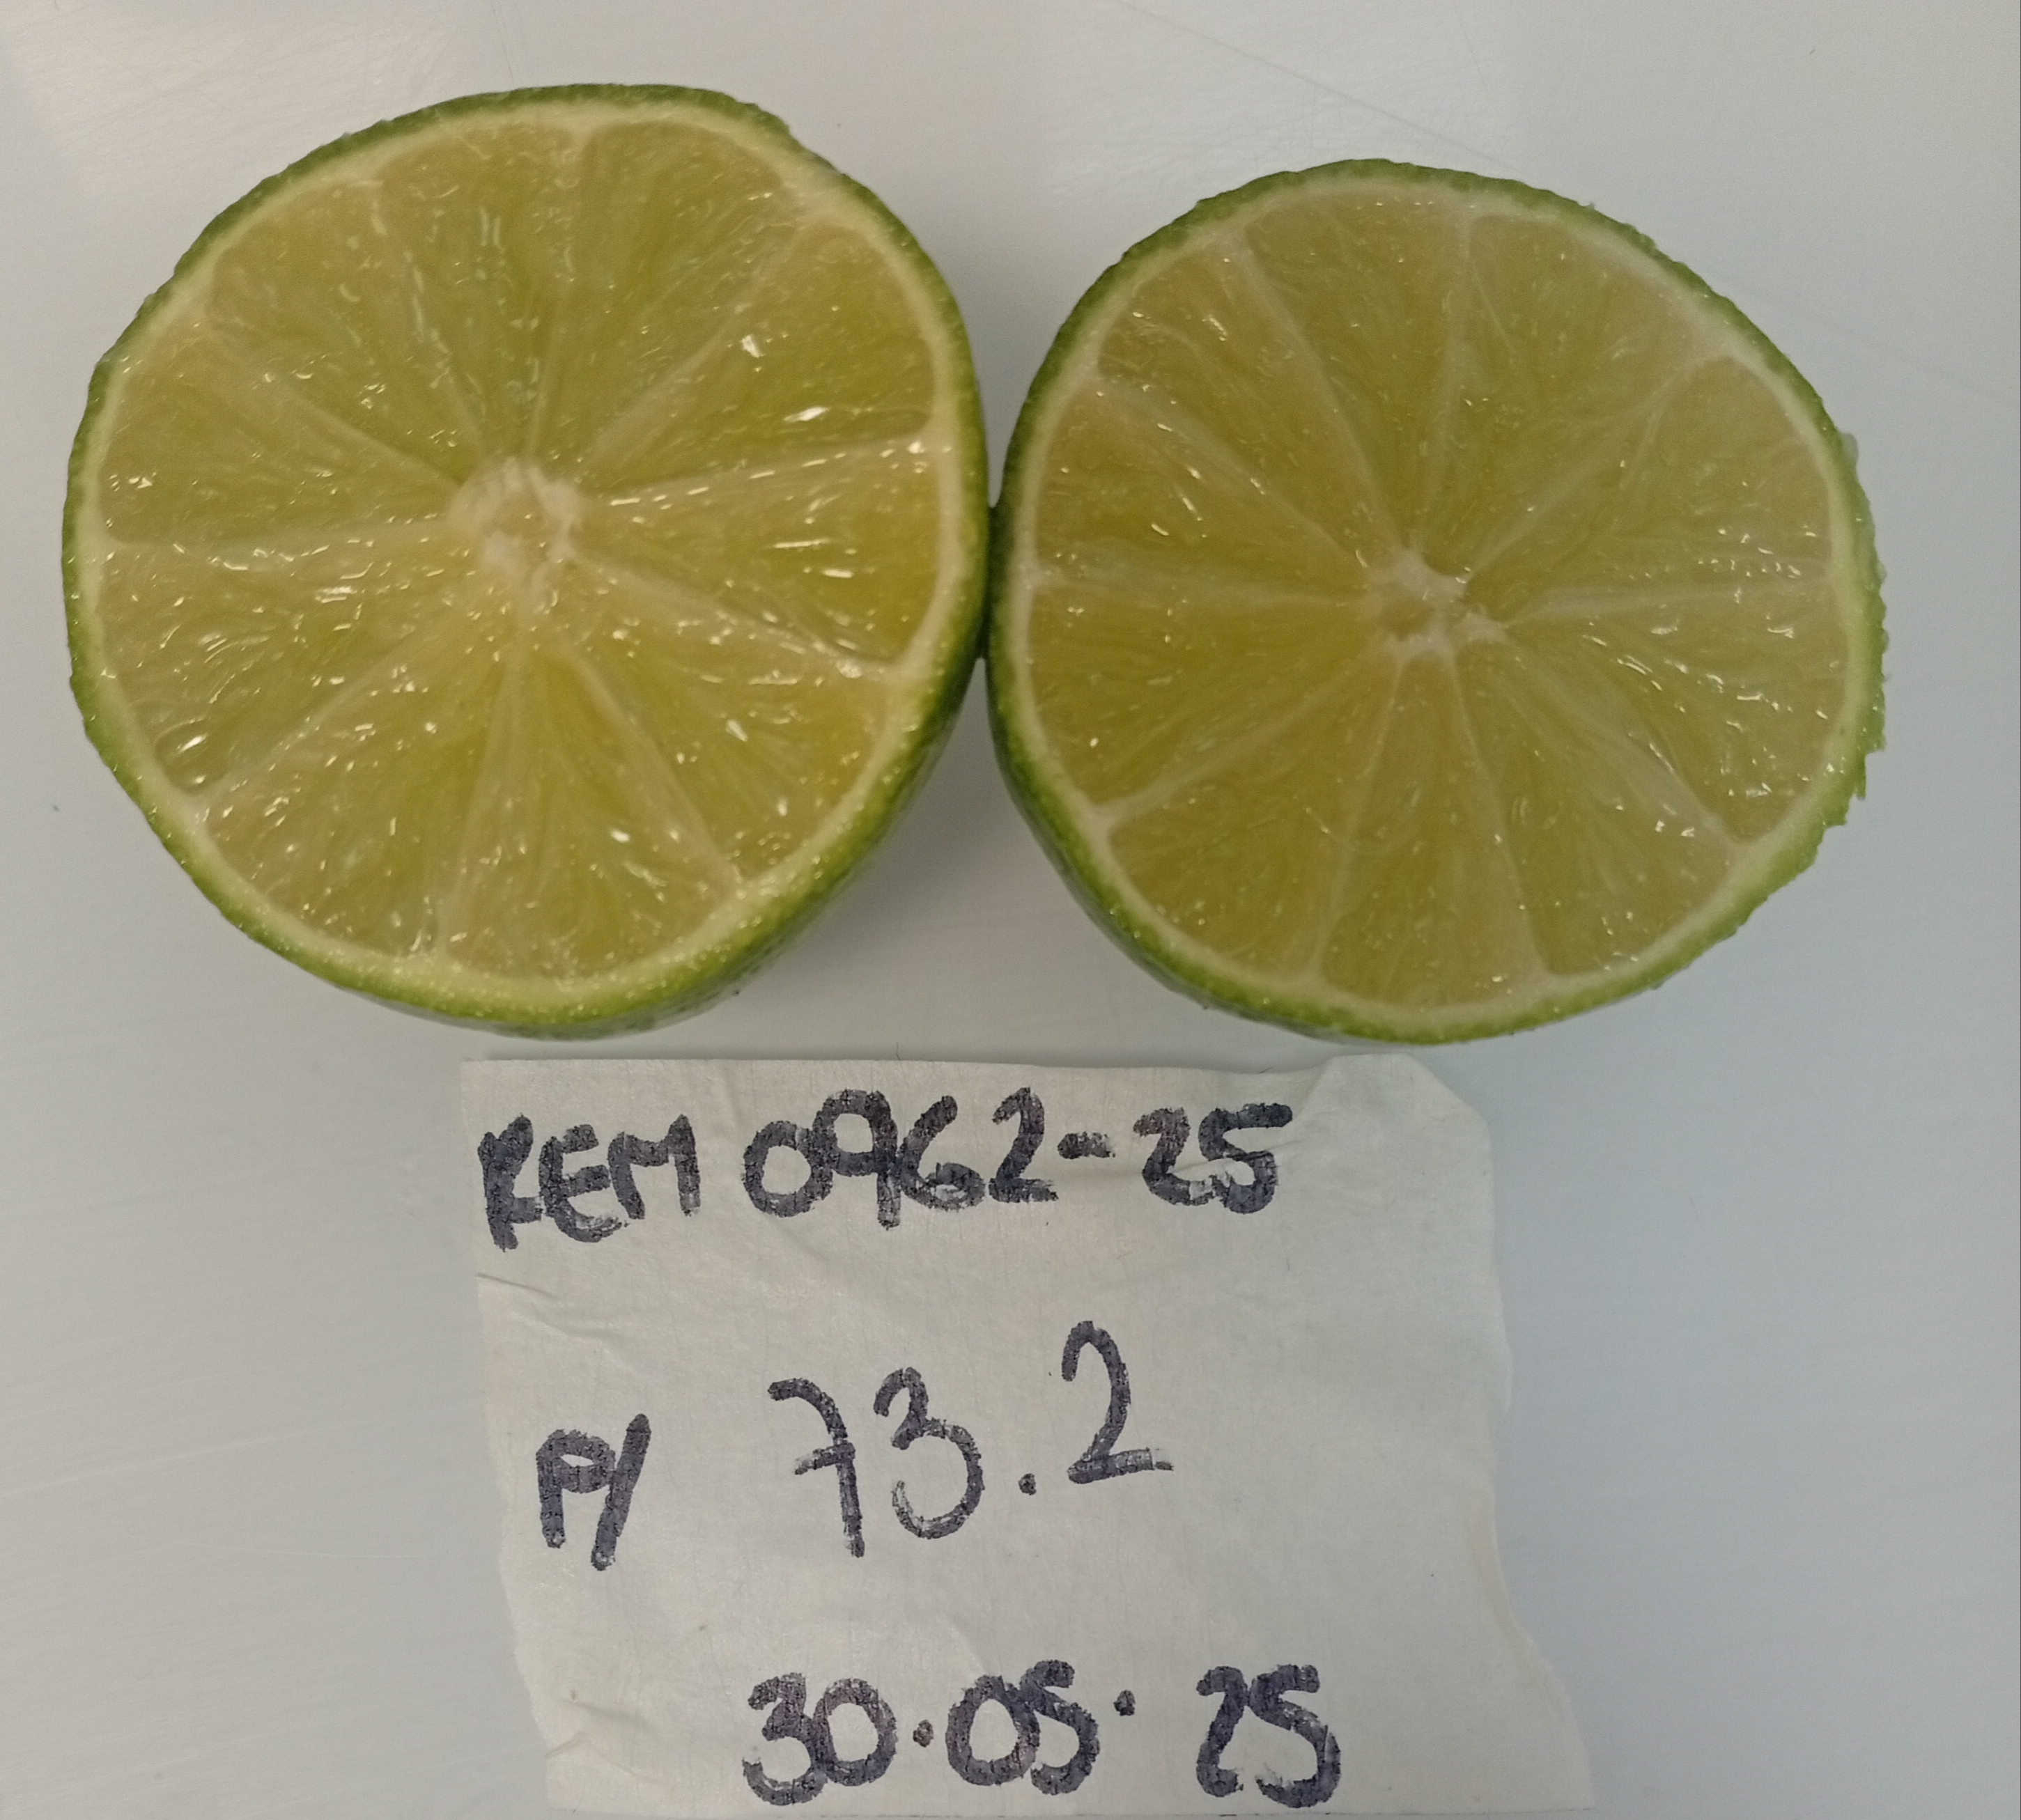 REM 0962-25
P/ 73.2
30.05.25